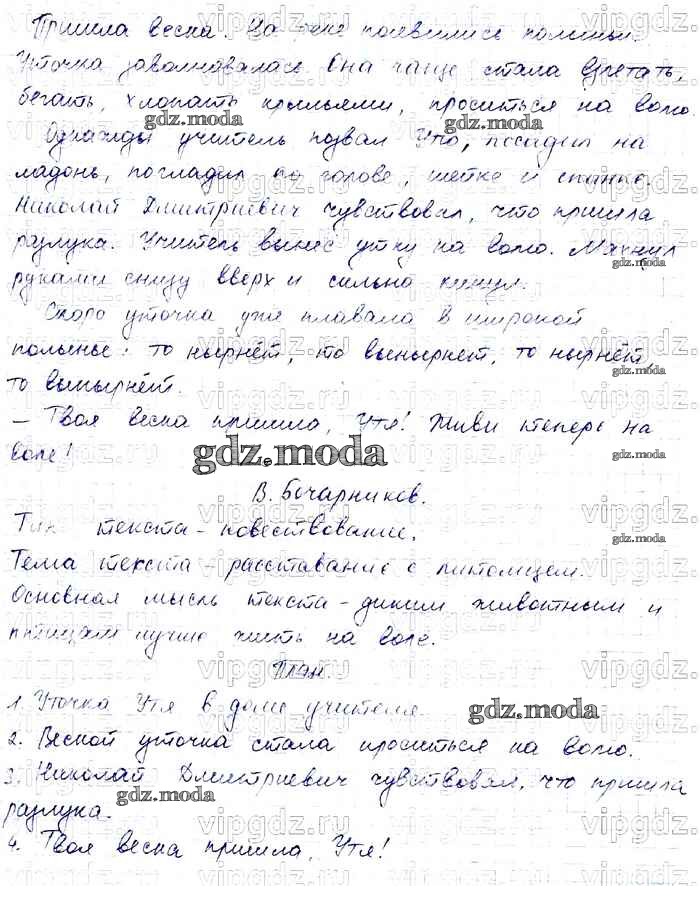 Пришла весна. На реке появились полыньи.
Уточка заволновалась. Она чаще стала взлетать,
бегать, хлопать крыльями, проситься на волю.
Однажды учитель позвал Утю, посадил на
ладонь, погладил по голове, шейке и спинке.
Николай Дмитриевич чувствовал, что пришла
разлука. Учитель вынес утку на волю. Махнул
руками снизу вверх и сильно кинул.
Скоро уточка уже плавала в широкой
полынье: то нырнёт, то вынырнет, то нырнёт,
то вынырнёт.
– Твоя весна пришла, Утя! Живи теперь на
воле!
В. Бочарников.
Тип текста – повествование.
Тема текста – расставание с питомцем.
Основная мысль текста – диким животным и
птицам лучше жить на воле.
План.
1. Уточка Утя в доме учителя.
2. Весной уточка стала проситься на волю.
3. Николай Дмитриевич чувствовал, что пришла
разлука.
4. Твоя весна пришла, Утя!
gdz.moda
vipgdz.ru